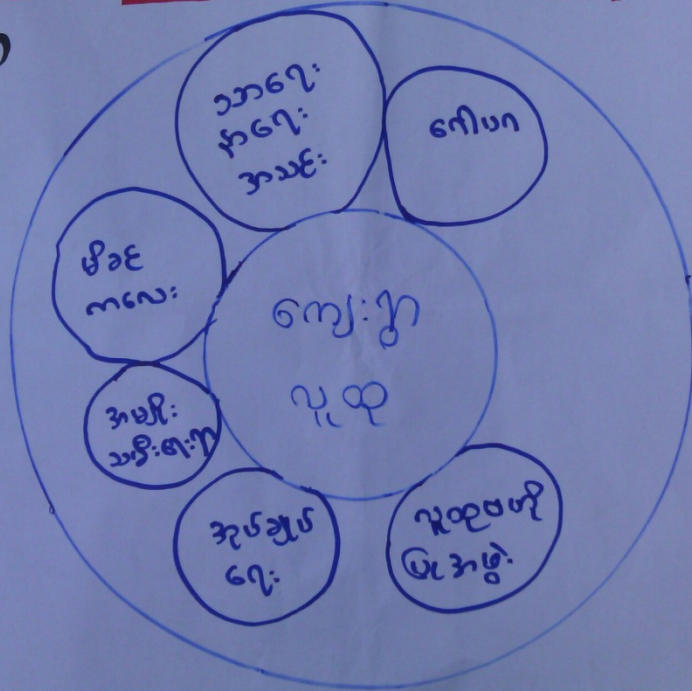 သာရေး
နာရေး
အသင်း
ဂေါပက
မိခင်
ကလေး
ကျေးရွာ
လူထု
အမျိုး
သမီးရေးရာ
အုပ်ချုပ်
ရေး
လူထုဗဟို
ပြုအဖွဲ့